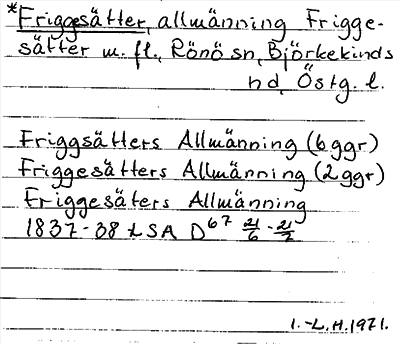 *Friggesätter, allmänning Frigge-
sätter m. fl., Rönö sn, Björkekinds
hd, Östg. l.
Friggsätters Allmänning (6 ggr)
Friggesätters Allmänning (2 ggr)
Friggesäters Allmänning
1837-38 LSA D67 21/6 - 21/7
I.-L. H. 1971.